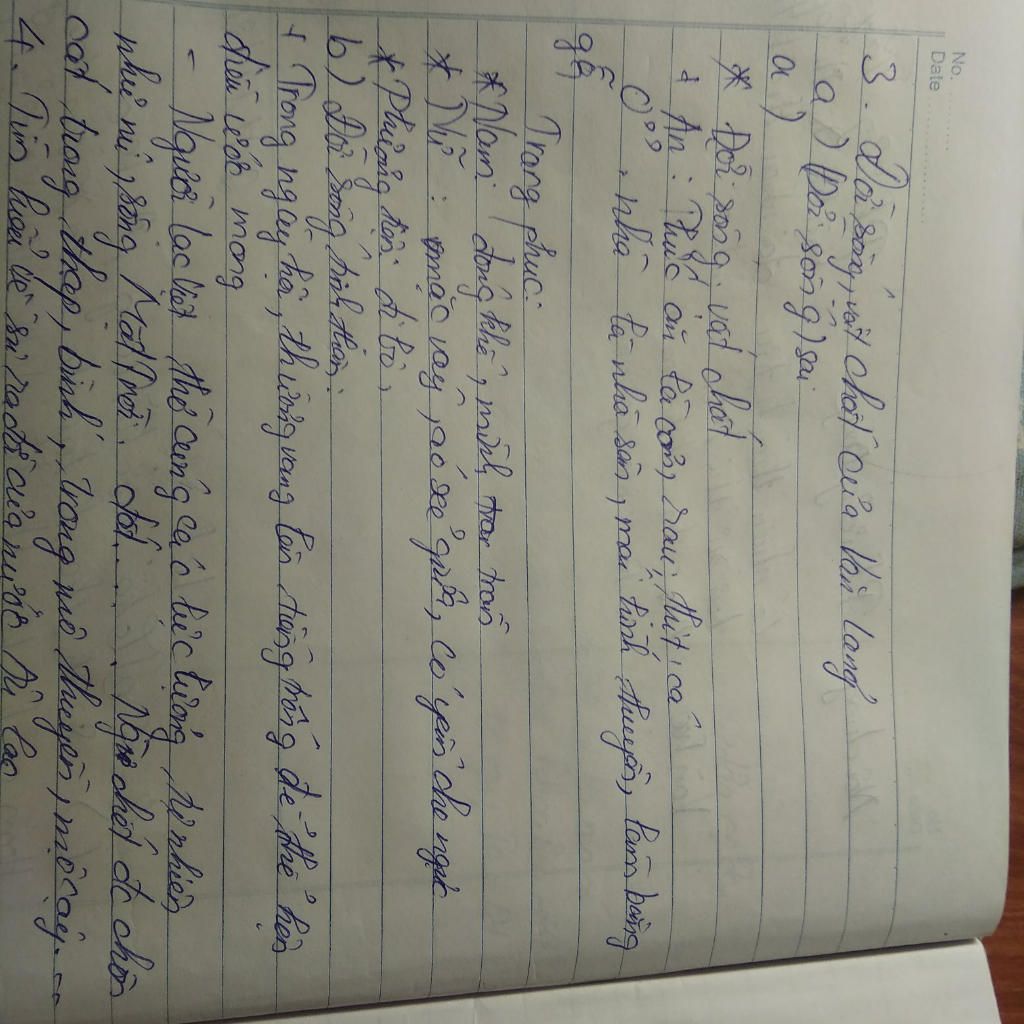 No. ............
Date ............
3. Đời sống, vật chất của Văn Lang
a) (Đời sống) sai
a)
* Đời sống vật chất
+ Ăn: Thức ăn là cơm, rau, thịt, cá
Ở: nhà là nhà sàn, mái hình thuyền, làm bằng
gỗ,
Trang phục:
* Nam: đóng khố, mình trần
* Nữ: mặc váy, áo xẻ giữa, có yếm che ngực
* Phương tiện đi bộ,
b) Đời sống tinh thần:
+ Trong ngày hội, thường vang lên tiếng trống để thể hiện
điều ước mong
- Người lạc Việt thờ cúng các lực lượng tự nhiên
như núi, sông Mặt Trời, đất.... Người chết đc chôn
cất trong thạp, bình, trong mộ thuyền, mộ cây...
4. sự ra đời của nước Âu Lạc